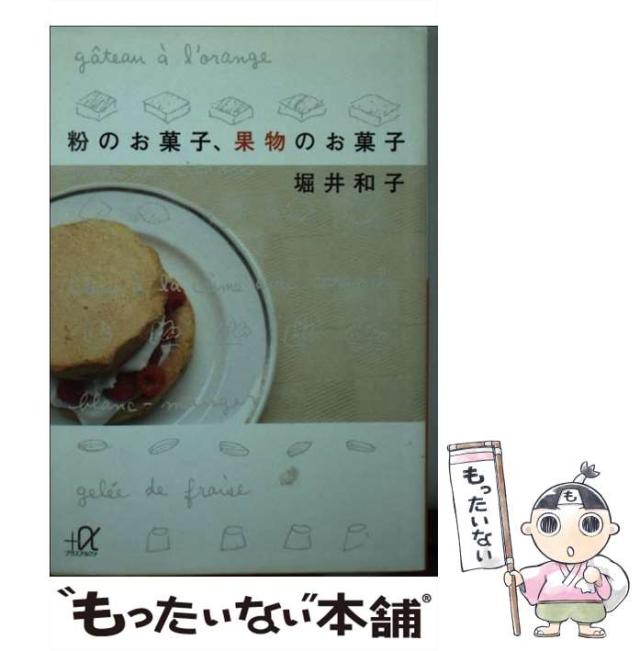 gâteau à l'orange
粉のお菓子、果物のお菓子
堀井和子
blanc-manger
gelée de fraise
+α
プラスアルファ
もったいない
も
“もったいない”本舗®